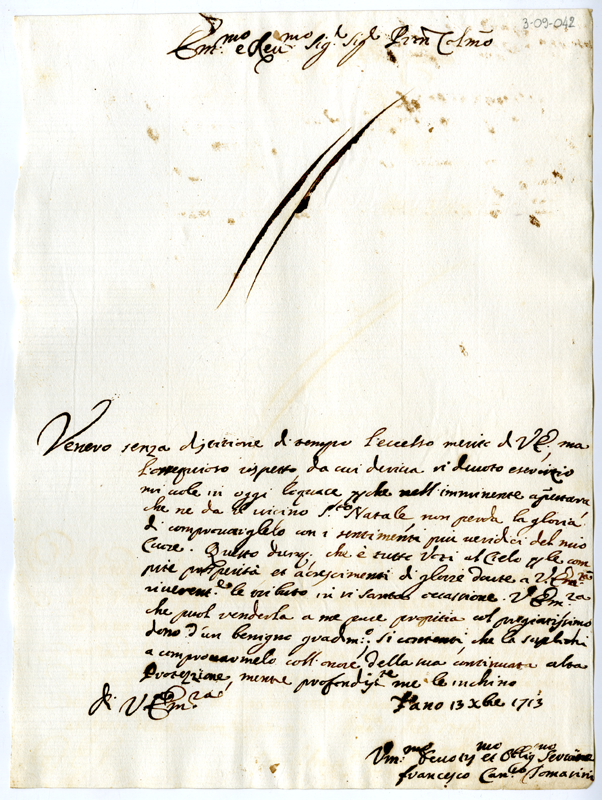 3-09-042
Em.mo e Reu.mo Sig.r Sig.r Pron Colmo
Venero senza distitione di tempo l'eccelso merito di V.E. ma
l'ossequioso rispetto da cui deriua si deuoto esercitio
mi uole in oggi loquace p che nell'imminente apertura
che ne da il uicino S.to Natale non perda la gloria
di comprouarglelo con i sentimenti piu ueridici del mio
Cuore. Questo dunq. che è tutto Voti al Cielo p le com
pite prosperità et accrescimenti di glorie douute a V.Em.za
riuerent.e le tributo in si santa occasione. V.Em.za
che puol renderla a me pure propitia col pregiatissimo
dono d'un benigno gradim.o si contenti che la suplichi
a comprouarmelo coll'onore della sua continuata alta
Protezzione, mentre profondiss.te me le inchino
di V.Em.za
Fano 13 Xbre 1713
Vm.mo Deuotis.mo et Oblig.mo Seruitore
Francesco Can.co Tomasini